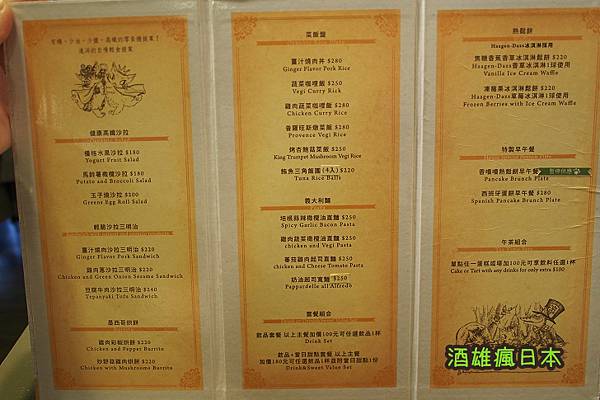 有機、少油、少鹽、高纖的零負擔提案！
優格水果沙拉 $180
Yogurt Fruit Salad
馬鈴薯橄欖沙拉 $150
Potato and Broccoli Salad
玉子燒沙拉 $200
Greens Egg Roll Salad
輕脆沙拉三明治
薑汁燒肉沙拉三明治 $220
Ginger Flavor Pork Sandwich
雞肉蔥沙拉三明治 $220
Chicken and Green Onion Sesame Sandwich
豆腐牛肉沙拉三明治 $240
Tepanyuki Tofu Sandwich
墨西哥烘餅
雞肉彩椒烘餅 $220
Chicken and Pepper Burrita
炒野菇雞肉烘餅 $220
Chicken with Mushrooms Burrita
菜飯盤
薑汁燒肉丼 $280
Ginger Flavor Pork Rice
蔬菜咖哩飯 $250
Vegi Curry Rick
雞肉蔬菜咖哩飯 $280
Chicken Curry Rice
普羅旺斯燉菜飯 $280
Provence Vegi Rice
烤杏鮑菇菜飯 $250
King Trumpet Mushroom Vegi Rice
鮪魚三角飯團(4入) $220
Tuna Rice Balls
義大利麵
培根蒜辣橄欖油直麵 $250
Spicy Garlic Bacon Pasta
雞肉蔬菜橄欖油直麵 $250
chicken and Vegi Pasta
蕃茄雞肉起司直麵 $250
chicken and Cheese Tomato Pasta
奶油起司寬麵 $250
Pappardelle all'Alfredo
套餐組合
飲品套餐 以上主餐加價100元可任選飲品1杯
Drink Set
飲品+當日甜點套餐 以上主餐
加價180元可任選飲品1杯且附當日甜點1份
Drink&Sweet Value Set
熱鬆餅
Haagen-Dazs冰淇淋採用
焦糖香蕉香草冰淇淋鬆餅 $220
Haagen-Dazs香草冰淇淋1球使用
Vanilla Ice Cream Waffle
凍莓果冰淇淋鬆餅 $220
Haagen-Dazs草莓冰淇淋1球使用
Frozen Berries with Ice Cream Waffle
特製早午餐
香嘖嘖熱鬆餅早午餐
暫停供應
Pancake Brunch Plate
西班牙蛋餅早午餐 $280
Spanish Pancake Brunch Plate
午茶組合
單點任一蛋糕或塔加100元可享飲料任選1杯
Cake or Tart with any drinks for only extra $100
酒雄瘋日本